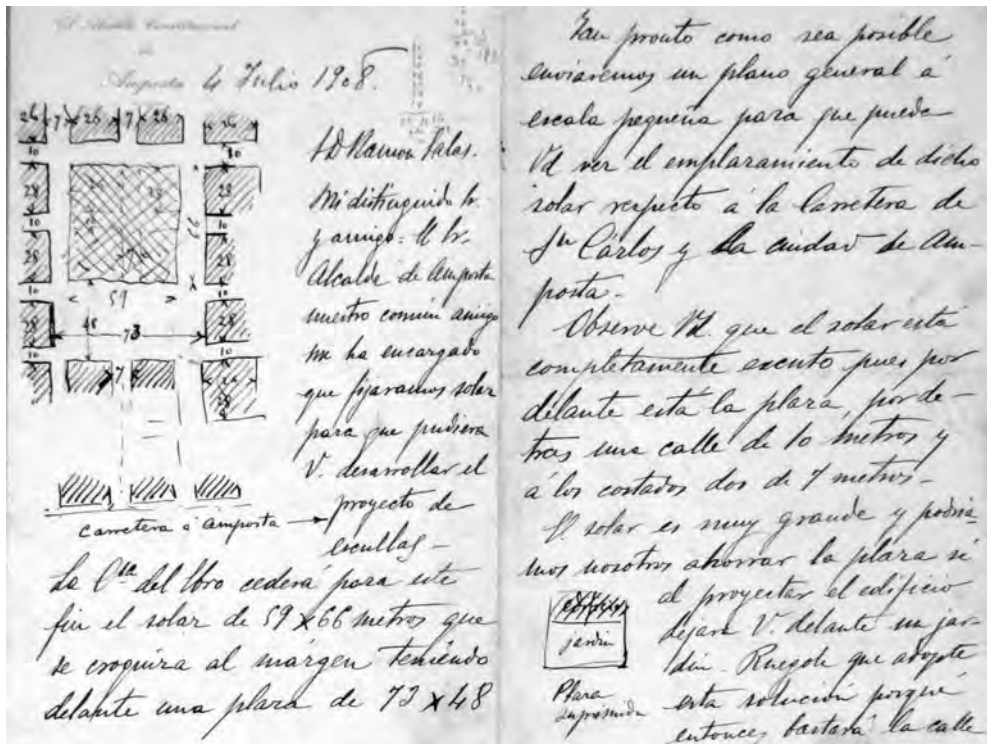 El Alcalde Constitucional
de
Amposta 4 Julio 1908.
26 7 26 7 26 26
10 10
28 28
10 10
28 66 28
10 59 10
28 48 73 28
10 10
7 26
28
carretera á Amposta
S D Ramon Salas.
Mi distinguido Sr.
y amigo: El Sr.
Alcalde de Amposta
nuestro común amigo
me ha encargado
que fijaramos solar
para que pudiera
V. desarrollar el
proyecto de
escuelas -
La Cia del Ebro cederá para este
fin el solar de 59 x 66 metros que
se croquiza al márgen teniendo
delante una plaza de 73 x 48
Tan pronto como sea posible
enviaremos un plano general á
escala pequeña para que pueda
Vd ver el emplazamiento de dicho
solar respecto á la Carretera de
Sn Cárlos y la ciudad de Am-
posta.
Observe Vd. que el solar está
completamente exento pues por
delante está la plaza, por de-
tras una calle de 10 metros y
á los costados dos de 7 metros -
El solar es muy grande y podria-
mos nosotros ahorrar la plaza si
al proyectar el edificio
dejara V. delante un jar-
din. Ruegole que adopte
esta solución porque
entonces bastará la calle
edificio
jardin
Plaza
suprimida